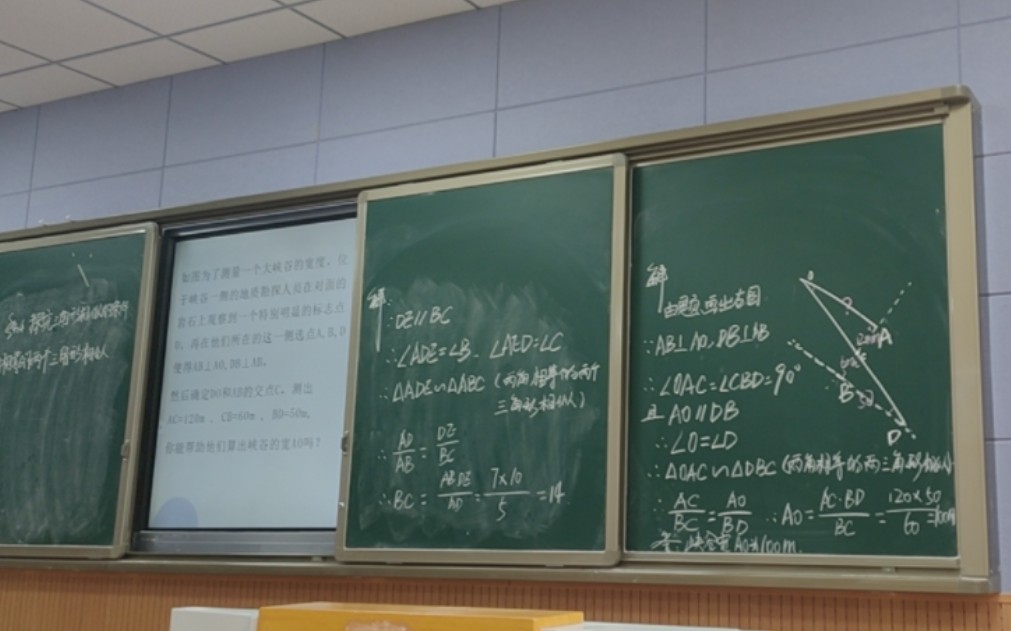 两个三角形相似
如图为了测量一个大峡谷的宽度，位
于峡谷一侧的地质勘探人员在对面的
岩石上观察到一个特别明显的标志点
O，再在他们所在的这一侧选点A,B,D
使得AB⊥AO,DB⊥AB。
然后确定DO和AB的交点C。测出
AC=120m，CB=60m，BD=50m，
你能帮助他们算出峡谷的宽AO吗？
解：
∵DE∥BC
∴∠ADE=∠B，∠AED=∠C
∴△ADE∽△ABC（两角相等的两个
三角形相似）
∴AD/AB=DE/BC
∴BC=AB·DE/AD=7×10/5=14
解
由题意，画出右图
∵AB⊥AO，DB⊥AB
∴∠OAC=∠CBD=90°
且AO∥DB
∴∠O=∠D
∴△OAC∽△DBC（两角相等的两三角形相似）
∴AC/BC=AO/BD ∴AO=AC·BD/BC=120×50/60=100m
答：峡谷宽AO为100m.
A
B
D